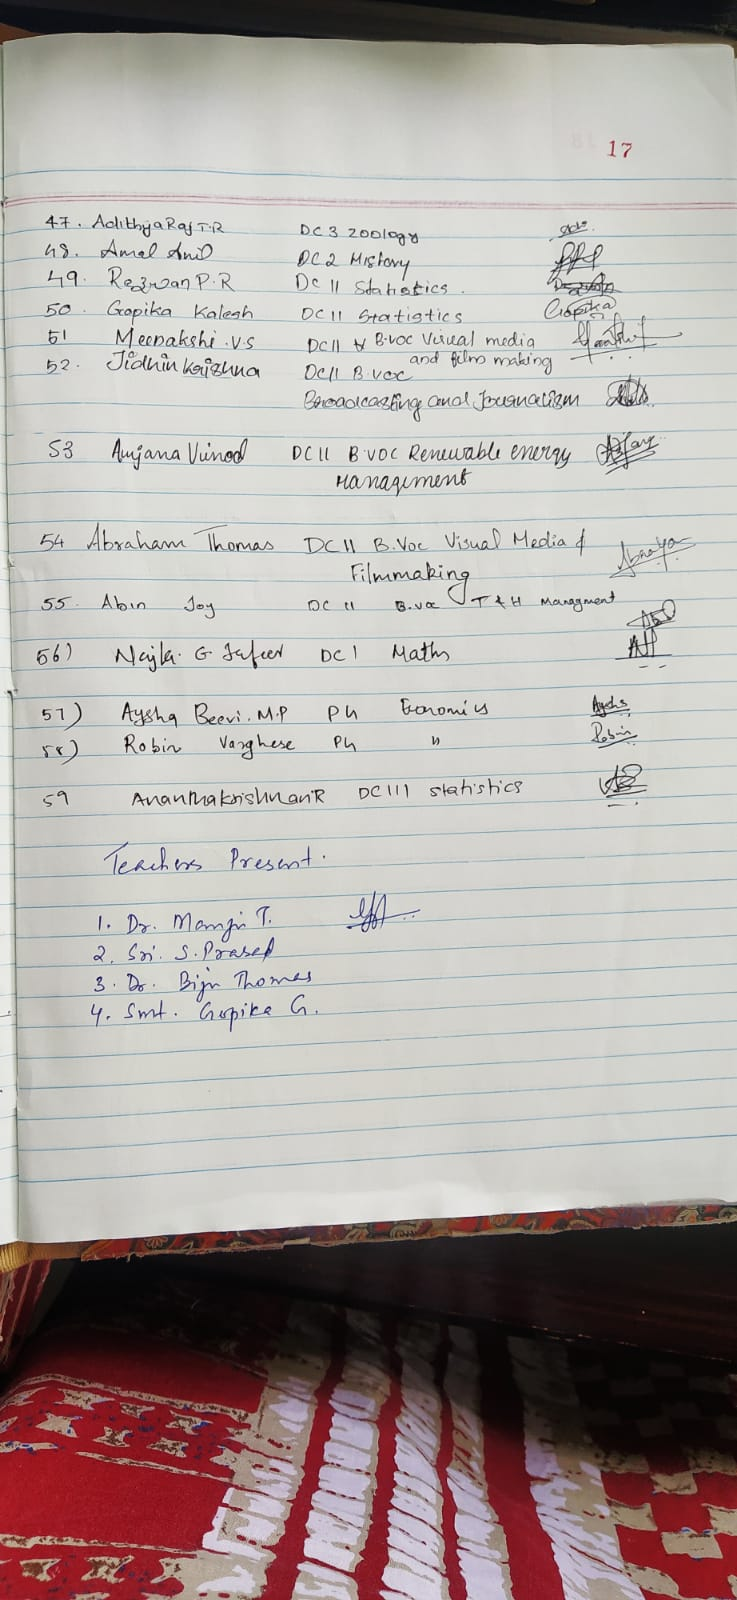 17
47. Adithya Raj T.R DC 3 Zoology
48. Amal Anil DC 2 History
49. Rezwan P.R DC II Statistics.
50. Gopika Kalesh DC II Statistics Gopika
51 Meenakshi.V.S DC II B.voc Visual media
and film making
52. Jidhin Krishna DC II B.voc
Broadcasting and Journalism
53 Anjana Vinod DC II B.VOC Renewable energy
Management
54 Abraham Thomas DC II B.Voc Visual Media &
Filmmaking
55. Abin Joy DC II B.voc T & H Managment
56) Najla. G Jafeer DC I Maths
57) Aysha Beevi. M.P PG Economics Aysha
58) Robin Varghese PG " Robin
59 Ananthakrishnan R DC III Statistics
Teachers Present.
1. Dr. T.
2. Sri. S. Prasad
3. Dr. Biju Thomas
4. Smt. Gopika G.